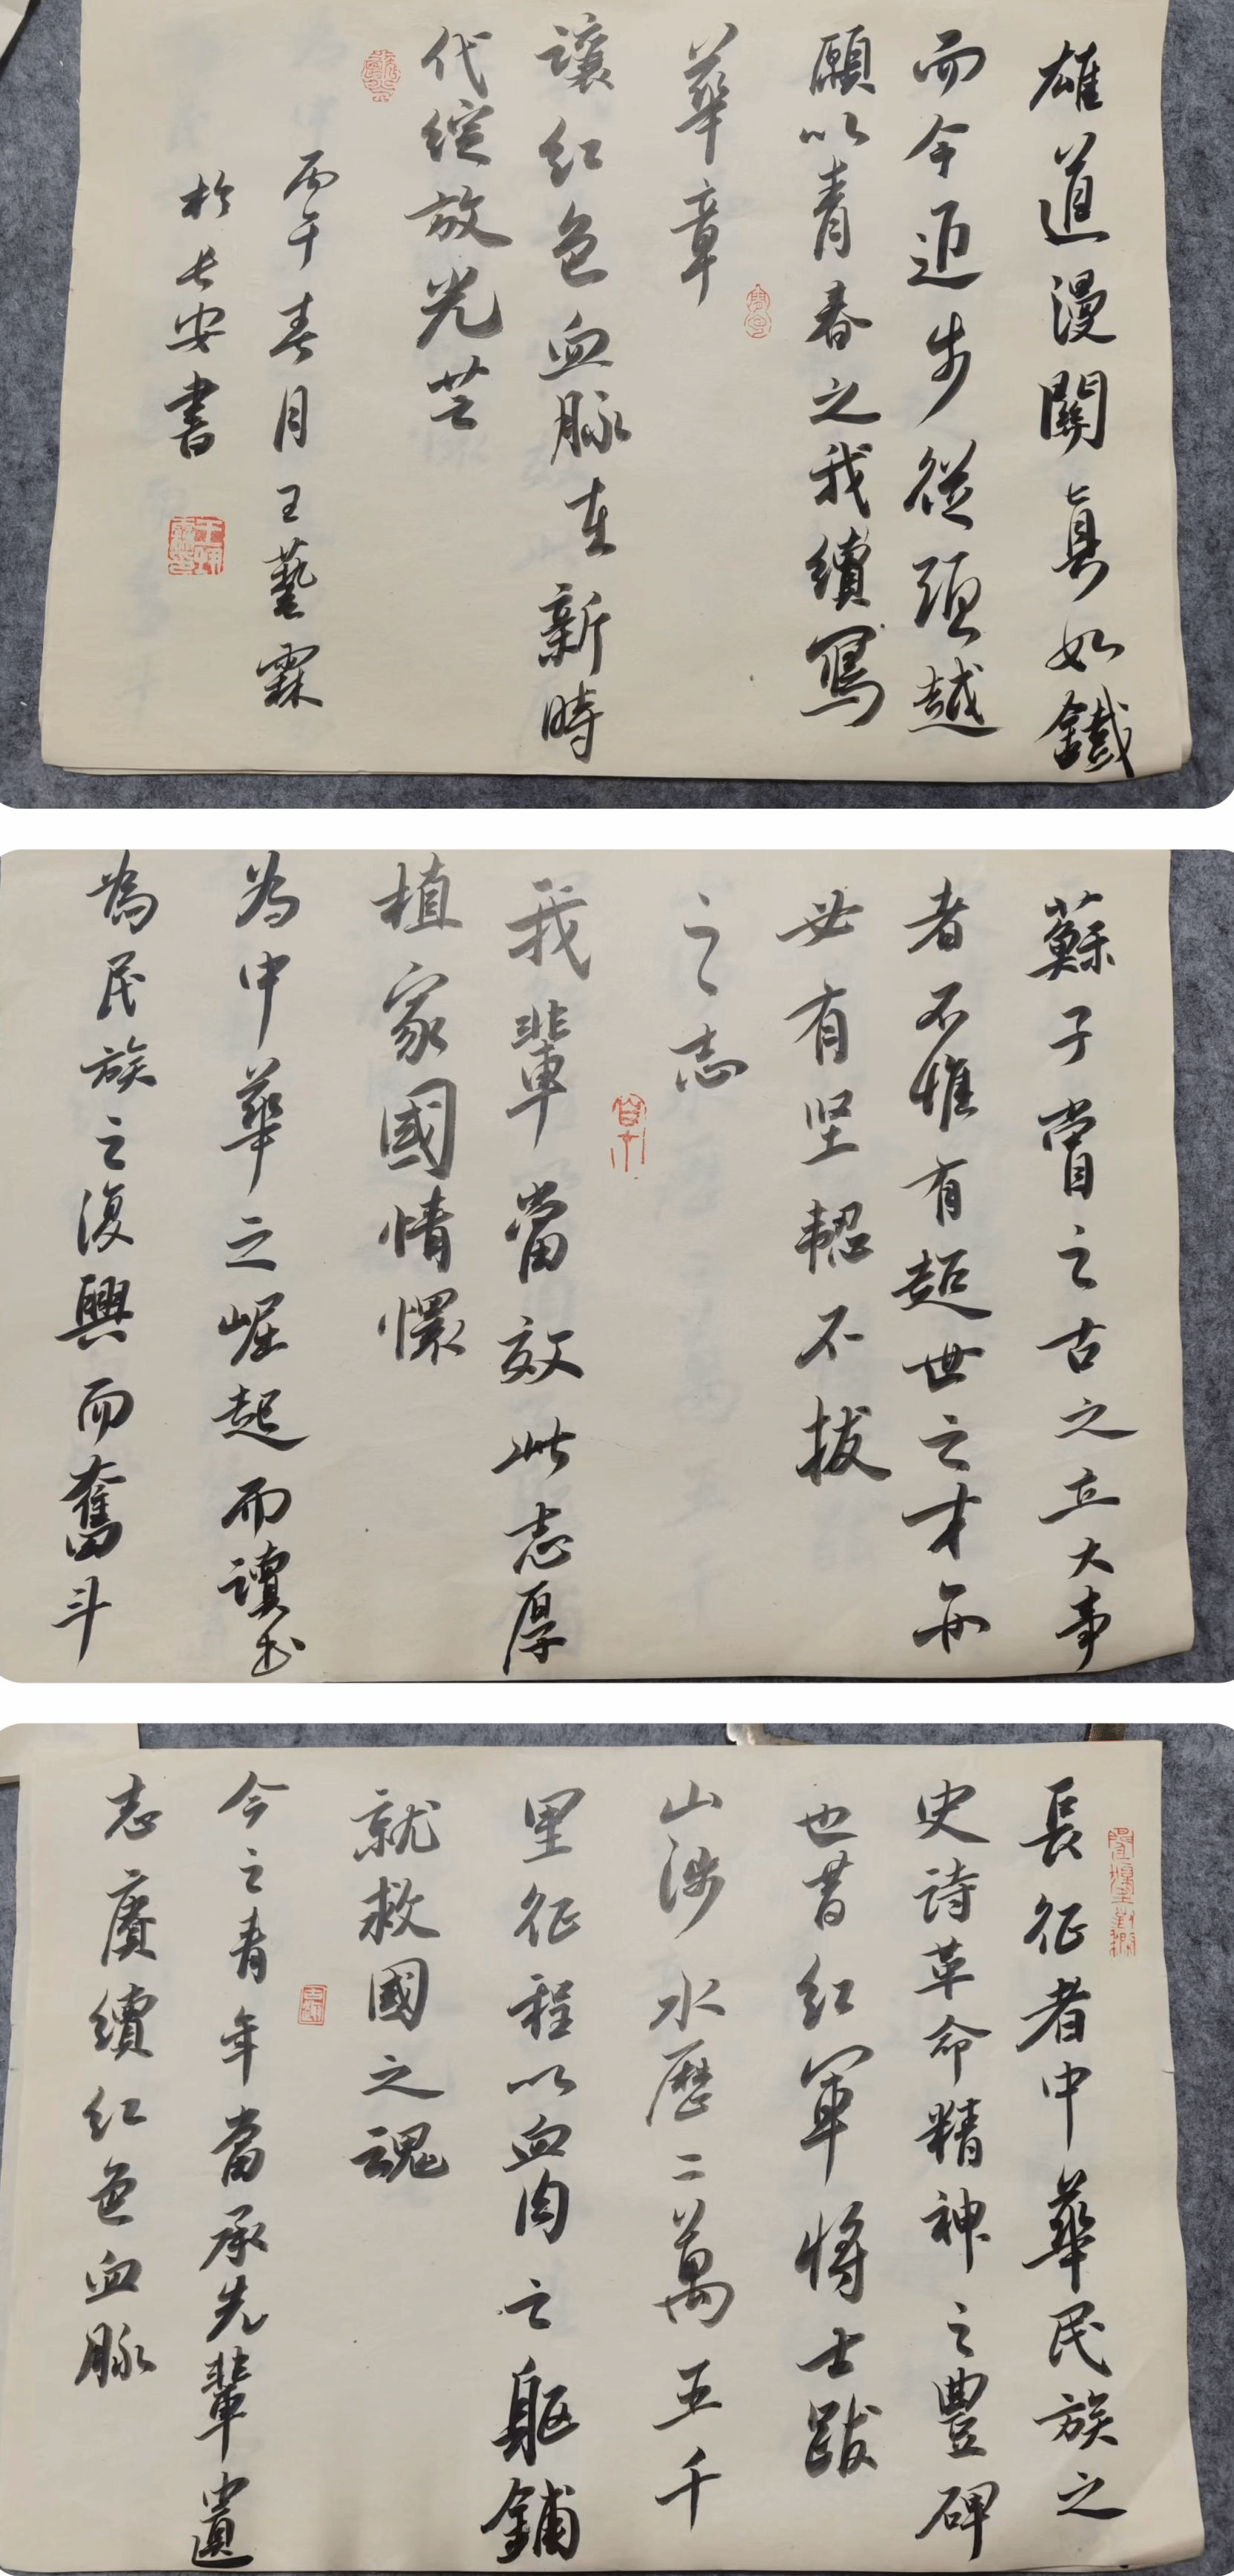 雄道漫關真如鐵
而今迈步從頭越
願以青春之我續寫
華章
讓紅色血脉在新時
代綻放光芒
丙午春月王藝霖
於長安書
蘇子嘗之古之立大事
者不惟有超世之才亦
必有坚韧不拔
之志
我輩當效此志厚
植家國情懷
為中華之崛起而讀书
為民族之復興而奮斗
長征者中華民族之
史詩革命精神之豐碑
也昔紅軍將士跋
山涉水歷二萬五千
里征程以血肉之軀鋪
就救國之魂
今之青年當承先輩遺
志賡續紅色血脉